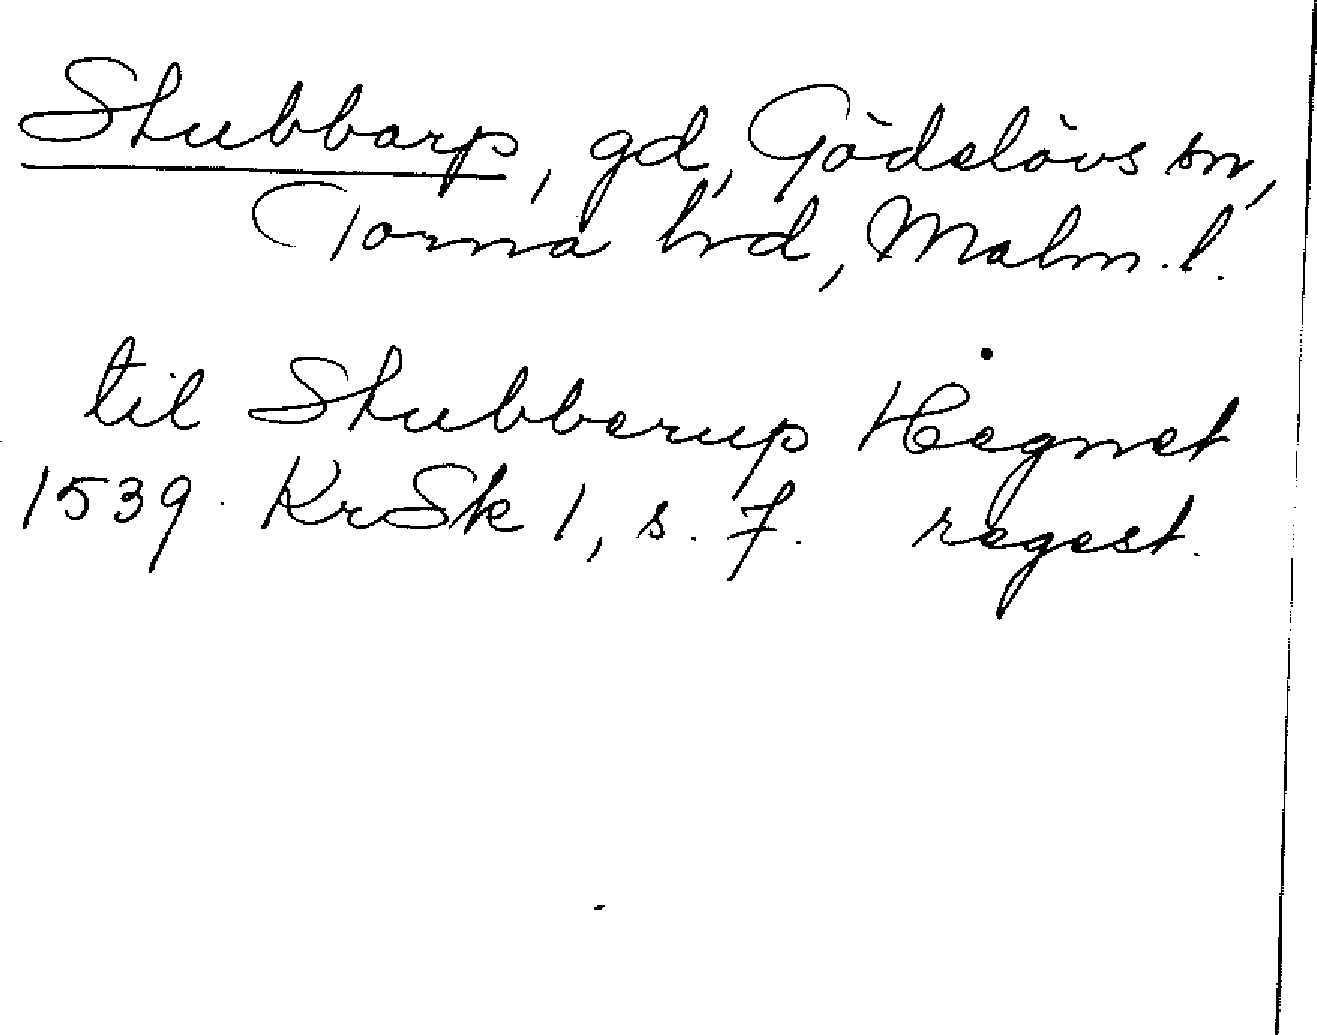 Stubbarp, gd, Gödelövs sn,
Torna hrd, Malm. l.
til Stubberup Hegnet
1539. KrSk 1, s. 7. regest.